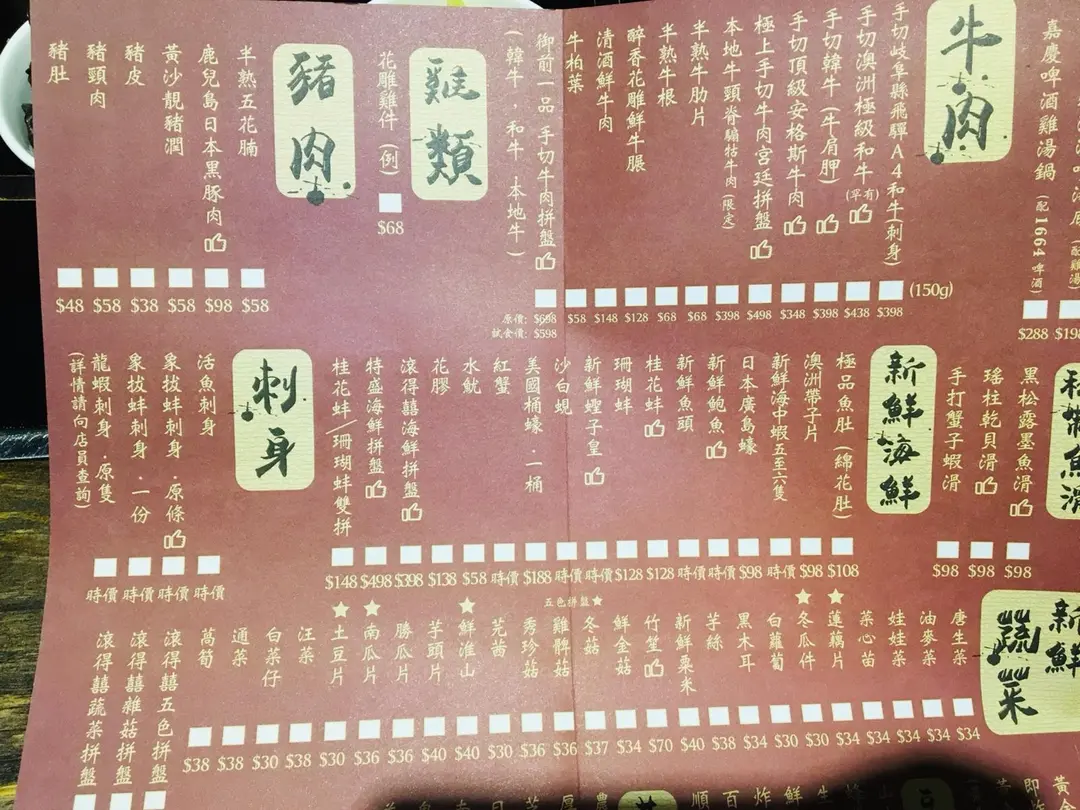 嘉慶啤酒雞湯鍋(配1664啤酒)
$288
牛肉
手切岐阜縣飛驒A4和牛(刺身)
(150g)
$398
手切澳洲極級和牛(罕有)
$438
手切韓牛(牛肩胛)
$398
手切頂級安格斯牛肉
$348
極上手切牛肉宮廷拼盤
$498
本地牛頸脊騸牯牛肉(限定)
$398
半熟牛肋片
$68
半熟牛根
$68
醉香花雕鮮牛脹
$128
清酒鮮牛肉
$148
牛柏葉
$58
御前一品 手切牛肉拼盤
(韓牛.和牛.本地牛)
原價: $698
試食價: $598
雞類
花雕雞件(例)
$68
豬肉
半熟五花腩
$58
鹿兒島日本黑豚肉
$98
黃沙靚豬潤
$58
豬皮
$38
豬頸肉
$58
豬肚
$48
黑松露墨魚滑
$98
瑤柱乾貝滑
$98
手打蟹子蝦滑
$98
新鮮海鮮
極品魚肚(綿花肚)
$108
澳洲帶子片
$98
新鮮海中蝦五至六隻
時價
日本廣島蠔
$98
新鮮鮑魚
時價
新鮮魚頭
時價
桂花蚌
$128
珊瑚蚌
$128
新鮮蟶子皇
時價
沙白蜆
時價
美國桶蠔.一桶
$188
紅蟹
時價
水魷
$58
花膠
$138
滾得囍海鮮拼盤
$398
特盛海鮮拼盤
$498
桂花蚌/珊瑚蚌雙拼
$148
刺身
活魚刺身
時價
象拔蚌刺身.原條
時價
象拔蚌刺身.一份
時價
龍蝦刺身.原隻
(詳情請向店員查詢)
時價
新鮮蔬菜
五色拼盤★
唐生菜
$34
油麥菜
$34
娃娃菜
$34
菜心苗
$34
★蓮藕片
$34
★冬瓜件
$30
白蘿蔔
$30
黑木耳
$34
芋絲
$38
新鮮粟米
$40
竹笙
$70
鮮金菇
$34
冬菇
$37
雞髀菇
$36
秀珍菇
$36
芫茜
$30
★鮮淮山
$40
芋頭片
$40
勝瓜片
$36
★南瓜片
$36
★土豆片
$30
汪菜
$38
白菜仔
$30
通菜
$38
萵筍
$38
滾得囍五色拼盤
滾得囍雜菇拼盤
滾得囍蔬菜拼盤